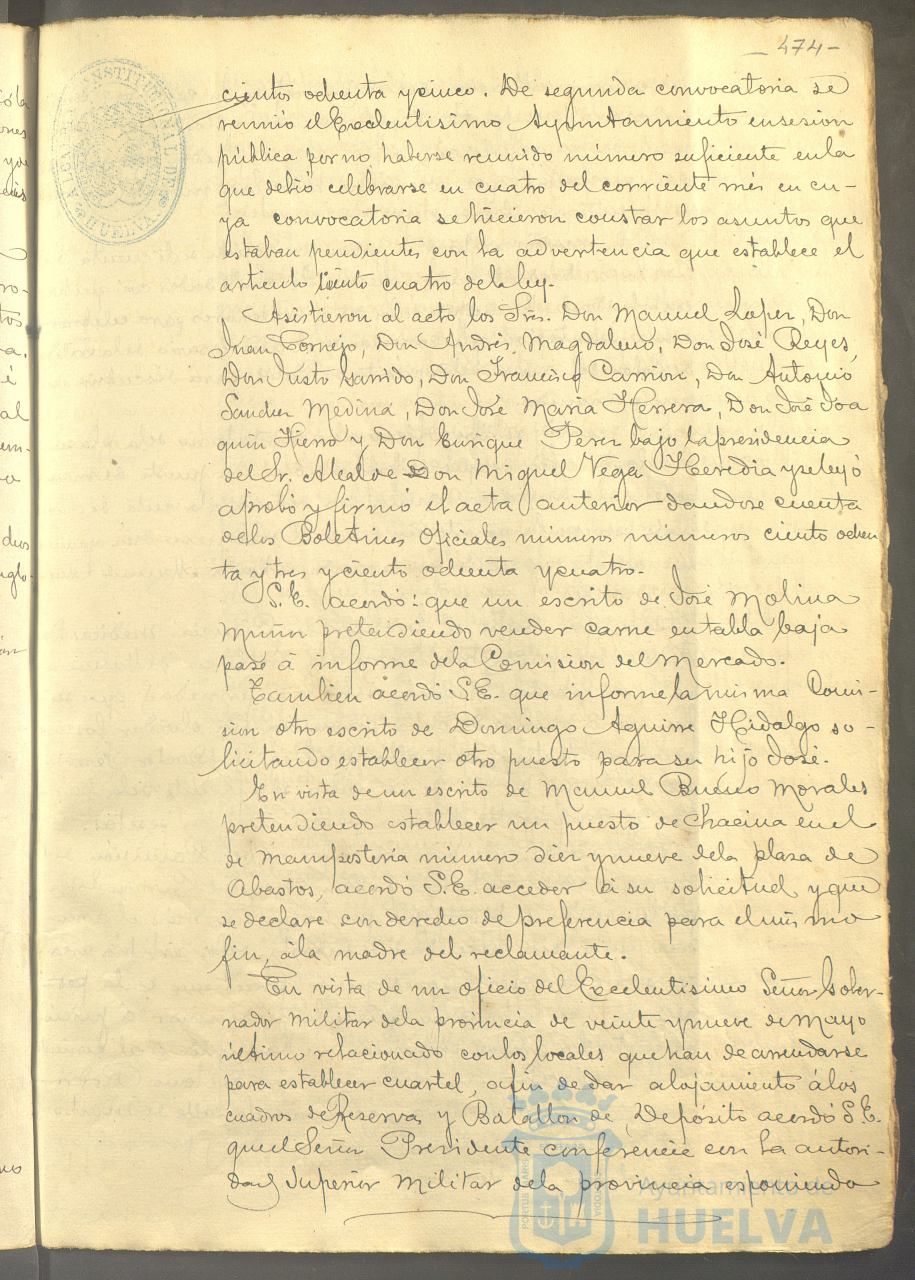 - 474 -
cientos ochenta y cinco. De segunda convocatoria se
reunió el Excelentisimo Ayuntamiento en sesion
pública por no haberse reunido número suficiente en la
que debió celebrarse en cuatro del corriente mes en cu-
ya convocatoria se hicieron constar los asuntos que
estaban pendientes con la advertencia que establece el
articulo ciento cuatro de la ley.
Asistieron al acto los Sres. Don Manuel Lopez, Don
Juan Cornejo, Don Andrés Magdaleno, Don José Reyes,
Don Justo Garrido, Don Francisco Carrion, Don Antonio
Sanchez Medina, Don José Maria Herrera, Don José Joa
quin Hierro y Don Enrique Perez bajo la presidencia
del Sr. Alcalde Don Miguel Vega Heredia y se leyó
aprobó y firmó el acta anterior dandose cuenta
de los Boletines Oficiales números números ciento ochen
ta y tres y ciento ochenta y cuatro.
S.E. acordó: que un escrito de José Molina
Muñoz pretendiendo vender carne en tabla baja
pase á informe de la Comision del Mercado.
Tambien acordó S.E. que informe la misma Comi-
sion otro escrito de Domingo Aguirre Hidalgo so-
licitando establecer otro puesto para su hijo José.
En vista de un escrito de Manuel Bueno Morales
pretendiendo establecer un puesto de Chacina en el
de mamposteria número diez y nueve de la plaza de
Abastos, acordó S.E. acceder á su solicitud y que
se declare con derecho de preferencia para el mismo
fin, á la madre del reclamante.
En vista de un oficio del Excelentisimo Señor Gober-
nador Militar de la provincia de veinte y nueve de Mayo
último relacionado con los locales que han de arrendarse
para establecer cuartel, a fin de dar alojamiento á los
cuadros de Reserva y Batallon de Depósito acordó S.E.
que el Señor Presidente conferencie con la autori-
dad Superior Militar de la provincia esponiendo
Ayuntamiento de
HUELVA